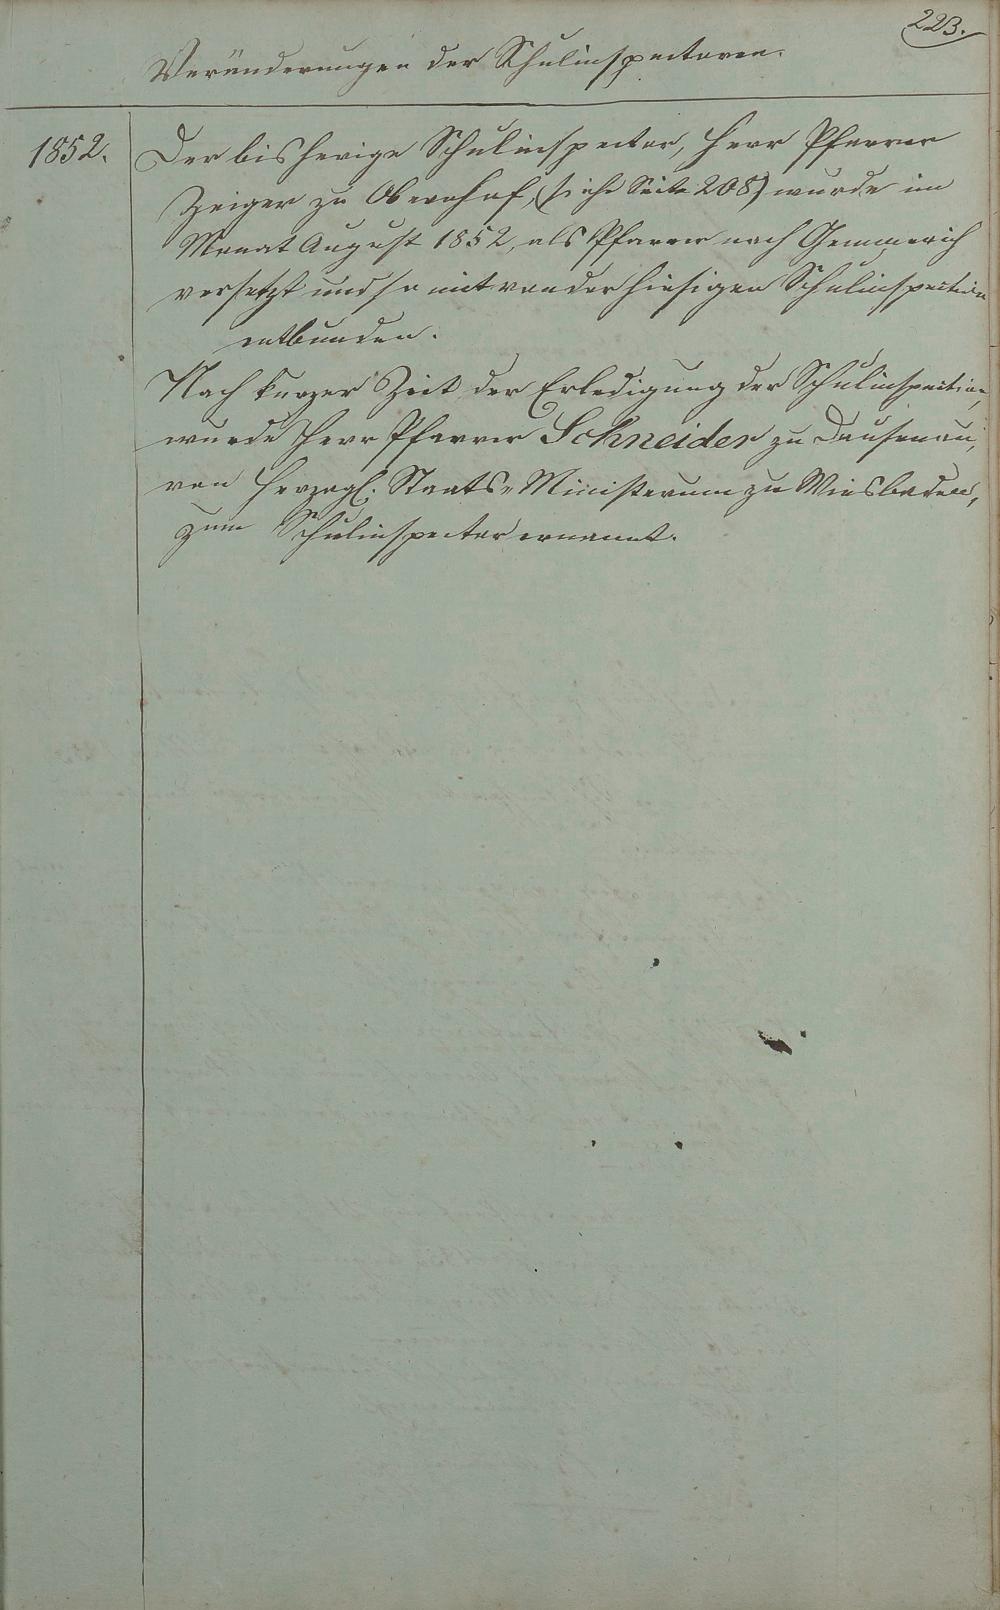 223.
Veränderungen der Schulinspectoren.
1852.
Der bisherige Schulinspector, Herr Pfarrer
Zeiger zu Obernhof, (siehe Seite 208) wurde im
Monat August 1852, als Pfarrer nach Gemmerich
versetzt und somit von der hiesigen Schulinspection
entbunden.
Nach kurzer Zeit der Erledigung der Schulinspection,
wurde Herr Pfarrer Schneider zu Dausenau,
von Herzogl. Staats-Ministerum zu Wiesbaden,
zum Schulinspector ernannt.